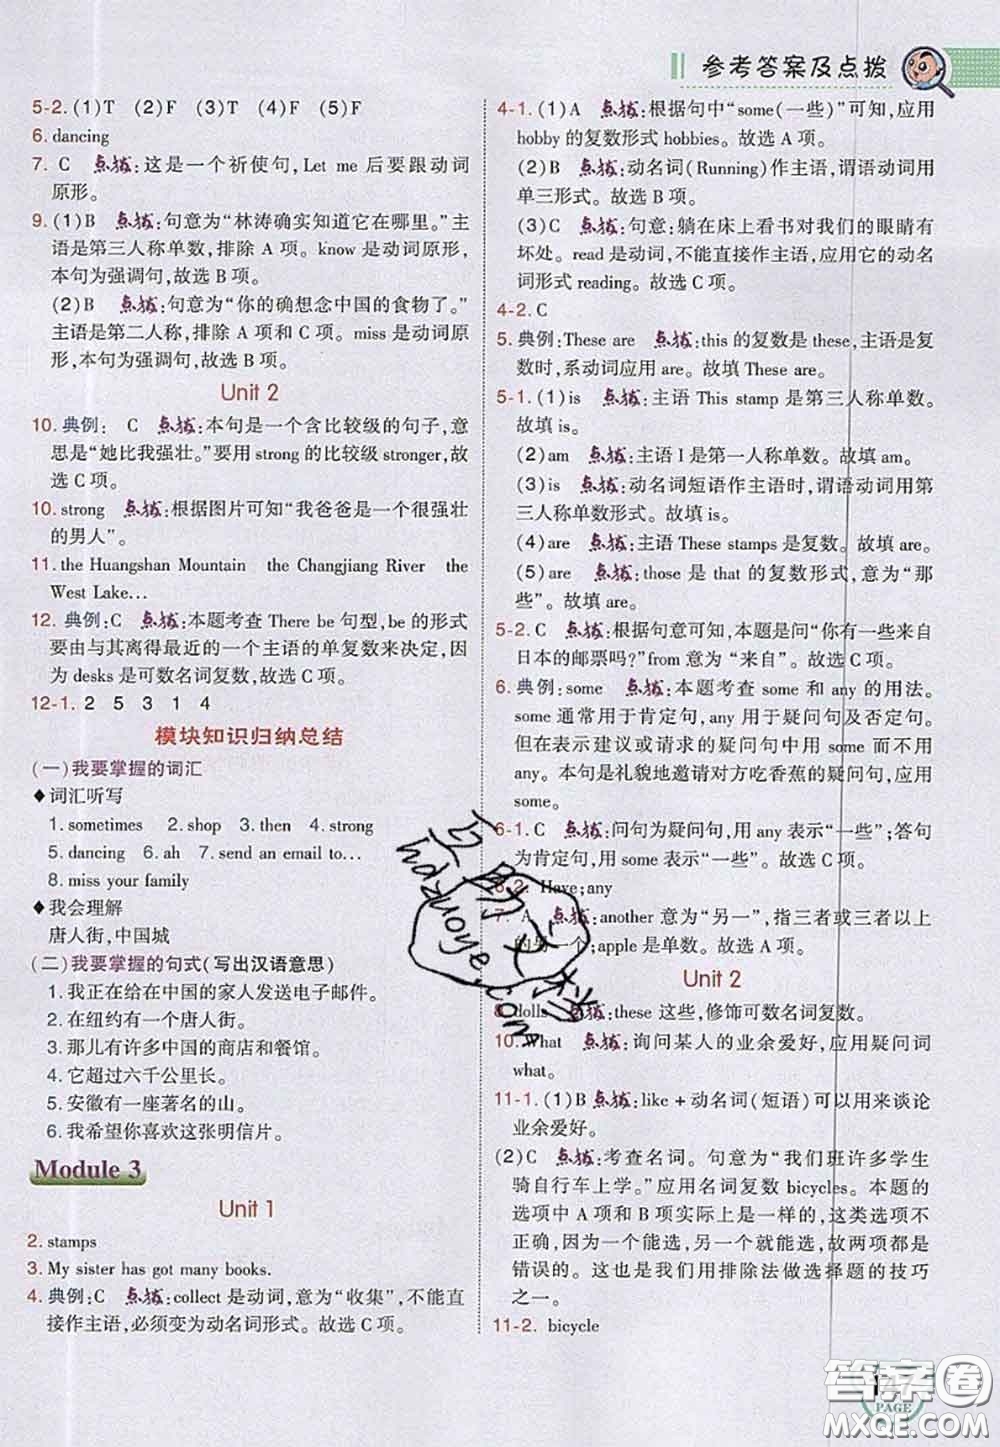 参考答案及点拨
5-2. (1)T (2)F (3)T (4)F (5)F
6. dancing
7. C 点拨:这是一个祈使句,Let me 后要跟动词
原形。
9. (1)B 点拨:句意为“林涛确实知道它在哪里。”主
语是第三人称单数,排除 A 项。know 是动词原形,
本句为强调句,故选 B 项。
(2)B 点拨:句意为“你的确想念中国的食物了。”
主语是第二人称,排除 A 项和 C 项。miss 是动词原
形,本句为强调句,故选 B 项。
Unit 2
10. 典例: C 点拨:本句是一个含比较级的句子,意
思是“她比我强壮。”要用 strong 的比较级 stronger,故
选 C 项。
10. strong 点拨:根据图片可知“我爸爸是一个很强壮
的男人”。
11. the Huangshan Mountain the Changjiang River the
West Lake…
12. 典例:C 点拨:本题考查 There be 句型,be 的形式
要由与其离得最近的一个主语的单复数来决定,因
为 desks 是可数名词复数,故选 C 项。
12-1. 2 5 3 1 4
模块知识归纳总结
(一)我要掌握的词汇
◆词汇听写
1. sometimes 2. shop 3. then 4. strong
5. dancing 6. ah 7. send an email to…
8. miss your family
◆我会理解
唐人街,中国城
(二)我要掌握的句式(写出汉语意思)
1. 我正在给在中国的家人发送电子邮件。
2. 在纽约有一个唐人街。
3. 那儿有许多中国的商店和餐馆。
4. 它超过六千公里长。
5. 安徽有一座著名的山。
6. 我希望你喜欢这张明信片。
Module 3
Unit 1
2. stamps
3. My sister has got many books.
4. 典例:C 点拨:collect 是动词,意为“收集”,不能直
接作主语,必须变为动名词形式。故选 C 项。
4-1. (1)A 点拨:根据句中“some(一些)”可知,应用
hobby 的复数形式 hobbies。故选 A 项。
(2)B 点拨:动名词(Running)作主语,谓语动词用
单三形式。故选 B 项。
(3)C 点拨:句意:躺在床上看书对我们的眼睛有
坏处。read 是动词,不能直接作主语,应用它的动名
词形式 reading。故选 C 项。
4-2. C
5. 典例:These are 点拨:this 的复数是 these,主语是复
数时,系动词应用 are。故填 These are。
5-1. (1)is 点拨:主语 This stamp 是第三人称单数。
故填 is。
(2)am 点拨:主语 I 是第一人称单数。故填 am。
(3)is 点拨:动名词短语作主语时,谓语动词用第
三人称单数形式。故填 is。
(4)are 点拨:主语 These stamps 是复数。故填 are。
(5)are 点拨:those 是 that 的复数形式,意为“那
些”。故填 are。
5-2. C 点拨:根据句意可知,本题是问“你有一些来自
日本的邮票吗?”from 意为 “来自”。故选 C 项。
6. 典例:some 点拨:本题考查 some 和 any 的用法。
some 通常用于肯定句,any 用于疑问句及否定句。
但在表示建议或请求的疑问句中用 some 而不用
any。本句是礼貌地邀请对方吃香蕉的疑问句,应用
some。
6-1. C 点拨:问句为疑问句,用 any 表示“一些”;答句
为肯定句,用 some 表示“一些”。故选 C 项。
6-2. Have;any
7. A 点拨:another 意为“另一”,指三者或三者以上
的另一个;apple 是单数。故选 A 项。
Unit 2
8. dolls 点拨:these 这些,修饰可数名词复数。
10. What 点拨:询问某人的业余爱好,应用疑问词
what。
11-1. (1)B 点拨:like + 动名词(短语)可以用来谈论
业余爱好。
(2)C 点拨:考查名词。句意为“我们班许多学生
骑自行车上学。”应用名词复数 bicycles。本题的
选项中 A 项和 B 项实际上是一样的,这类选项不
正确,因为一个能选,另一个就能选,故两项都是
错误的。这也是我们用排除法做选择题的技巧
之一。
11-2. bicycle
答案圈
MXQE.COM
PAGE